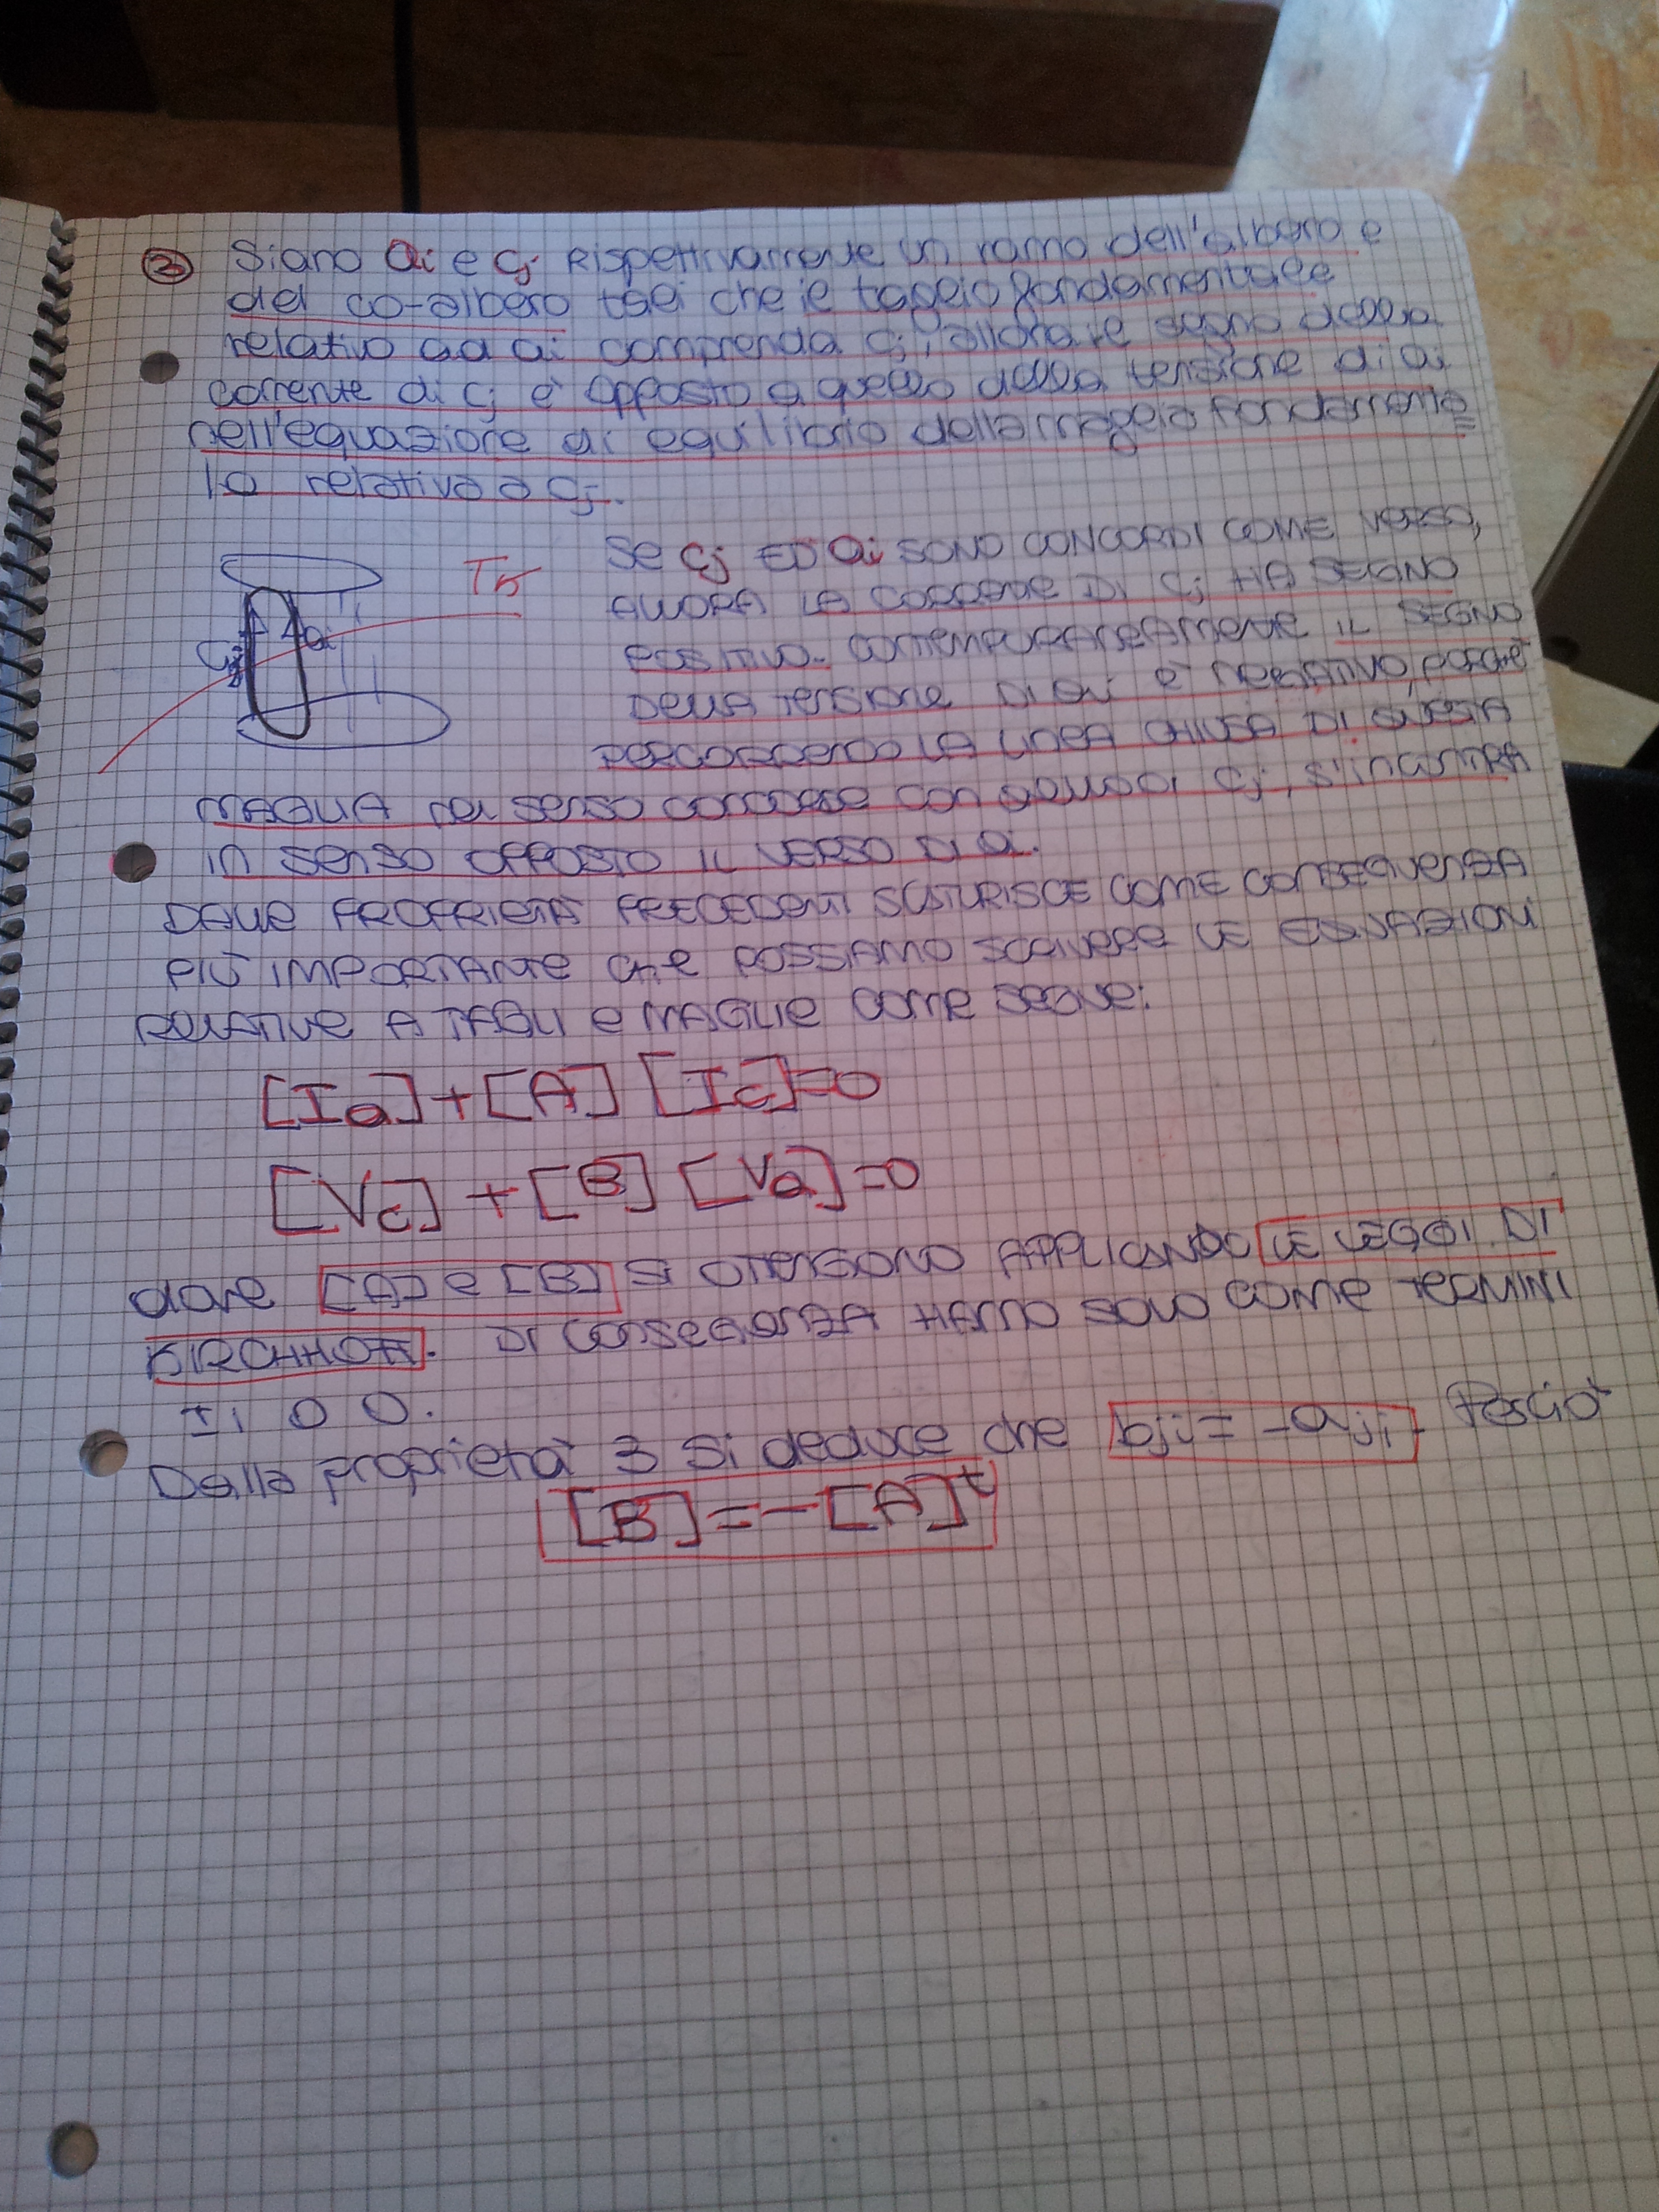 ③ Siano ai e cj rispettivamente un ramo dell'albero e
del co-albero tali che il taglio fondamentale
relativo ad ai comprenda cj, allora il segno della
corrente di cj è opposto a quello della tensione di ai
nell'equazione di equilibrio della maglia fondamenta=
le relativa a cj.
Se cj ED ai SONO CONCORDI COME VERSO,
ALLORA LA CORRENTE DI Cj HA SEGNO
POSITIVO. CONTEMPORANEAMENTE IL SEGNO
DELLA TENSIONE DI ai è NEGATIVO, perché
PERCORRENDO LA LINEA CHIUSA DI QUESTA
MAGLIA nel senso concorde con quello di Cj, s'incontra
in senso OPPOSTO IL VERSO DI ai.
Cj
ai
DALLE PROPRIETÀ PRECEDENTI SCATURISCE COME CONSEGUENZA
PIÙ IMPORTANTE che POSSIAMO SCRIVERE LE EQUAZIONI
RELATIVE A TAGLI e MAGLIE COME SEGUE:
[Ia]+[A][Ic]=0
[Vc]+[B][Va]=0
dove [A] e [B] SI OTTENGONO APPLICANDO LE LEGGI DI
KIRCHHOFF. DI CONSEGUENZA HANNO SOLO COME TERMINI
O 0.
Dalla proprietà 3 si deduce che bji = -aji. Perciò
[B]=-[A]^t